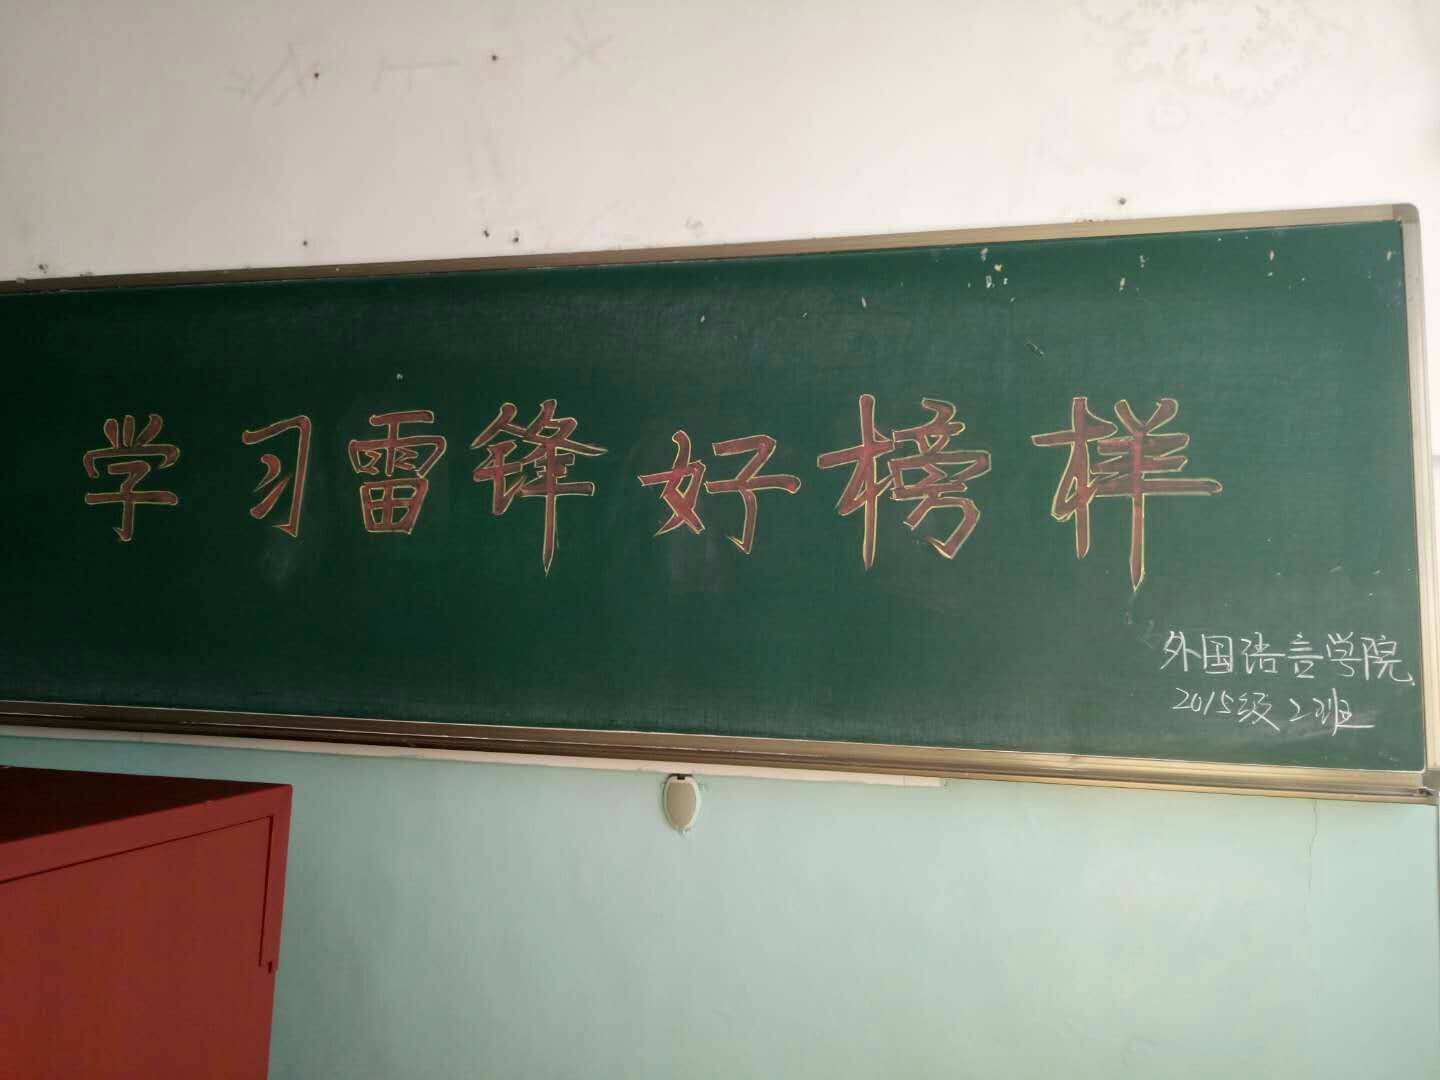 学习雷锋好榜样
外国语言学院
2015级2班